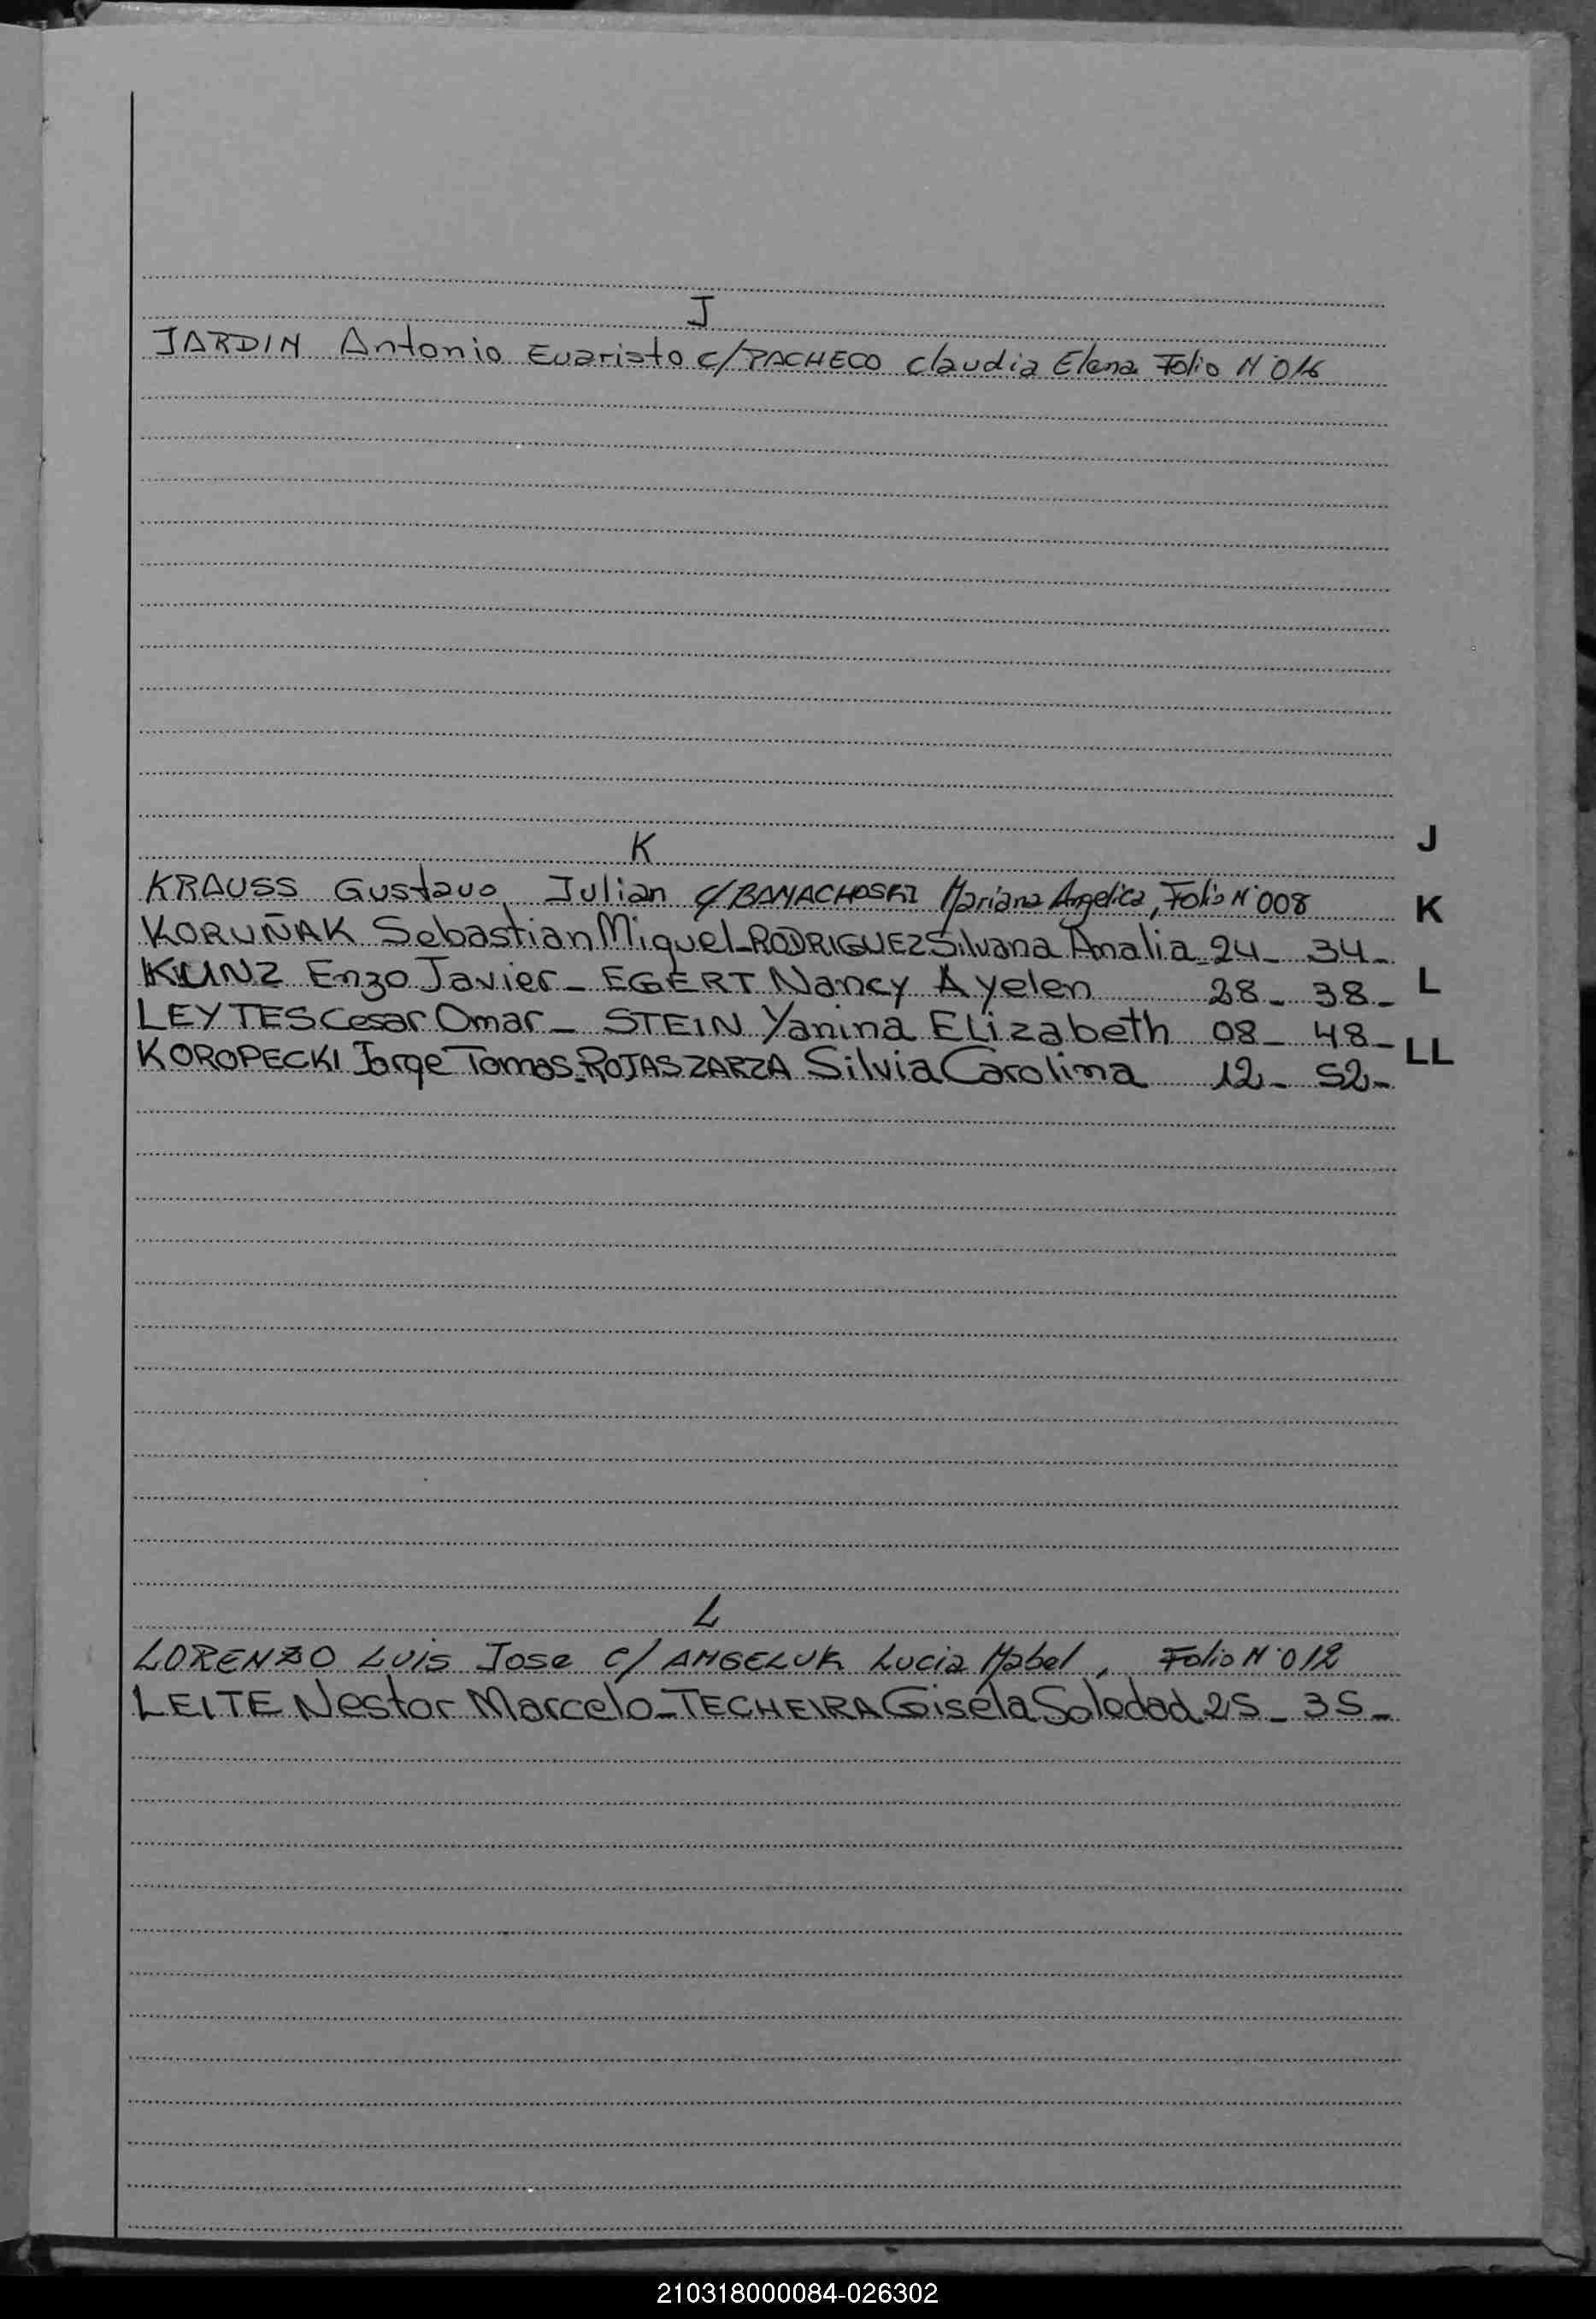 J
JARDIN Antonio Evaristo c/PACHECO Claudia Elena Folio Nº 016
J
K
KRAUSS Gustavo, Julian c/BANACHOSKI Mariana Angelica, Folio Nº 008
K
KORUÑAK Sebastian Miguel-RODRIGUEZ Silvana Analia-24- 34-
KUNZ Enzo Javier- EGERT Nancy Ayelen 28- 38-
L
LEYTES Cesar Omar- STEIN Yanina Elizabeth 08- 48-
LL
KOROPECKI Jorge Tomas-ROJAS ZARZA Silvia Carolina 12- 52-
L
LORENZO Luis Jose c/ ANGELUK Lucia Mabel, Folio Nº 012
LEITE Nestor Marcelo-TECHEIRA Gisela Soledad 25- 35-
210318000084-026302